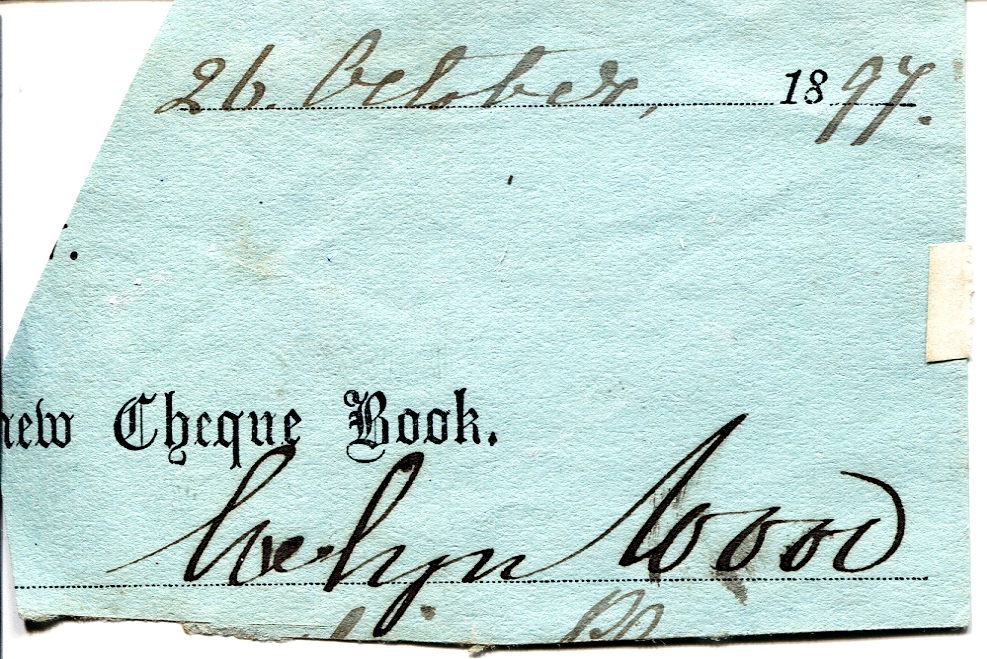 26. October, 1897.
new Cheque Book.
Evelyn Wood